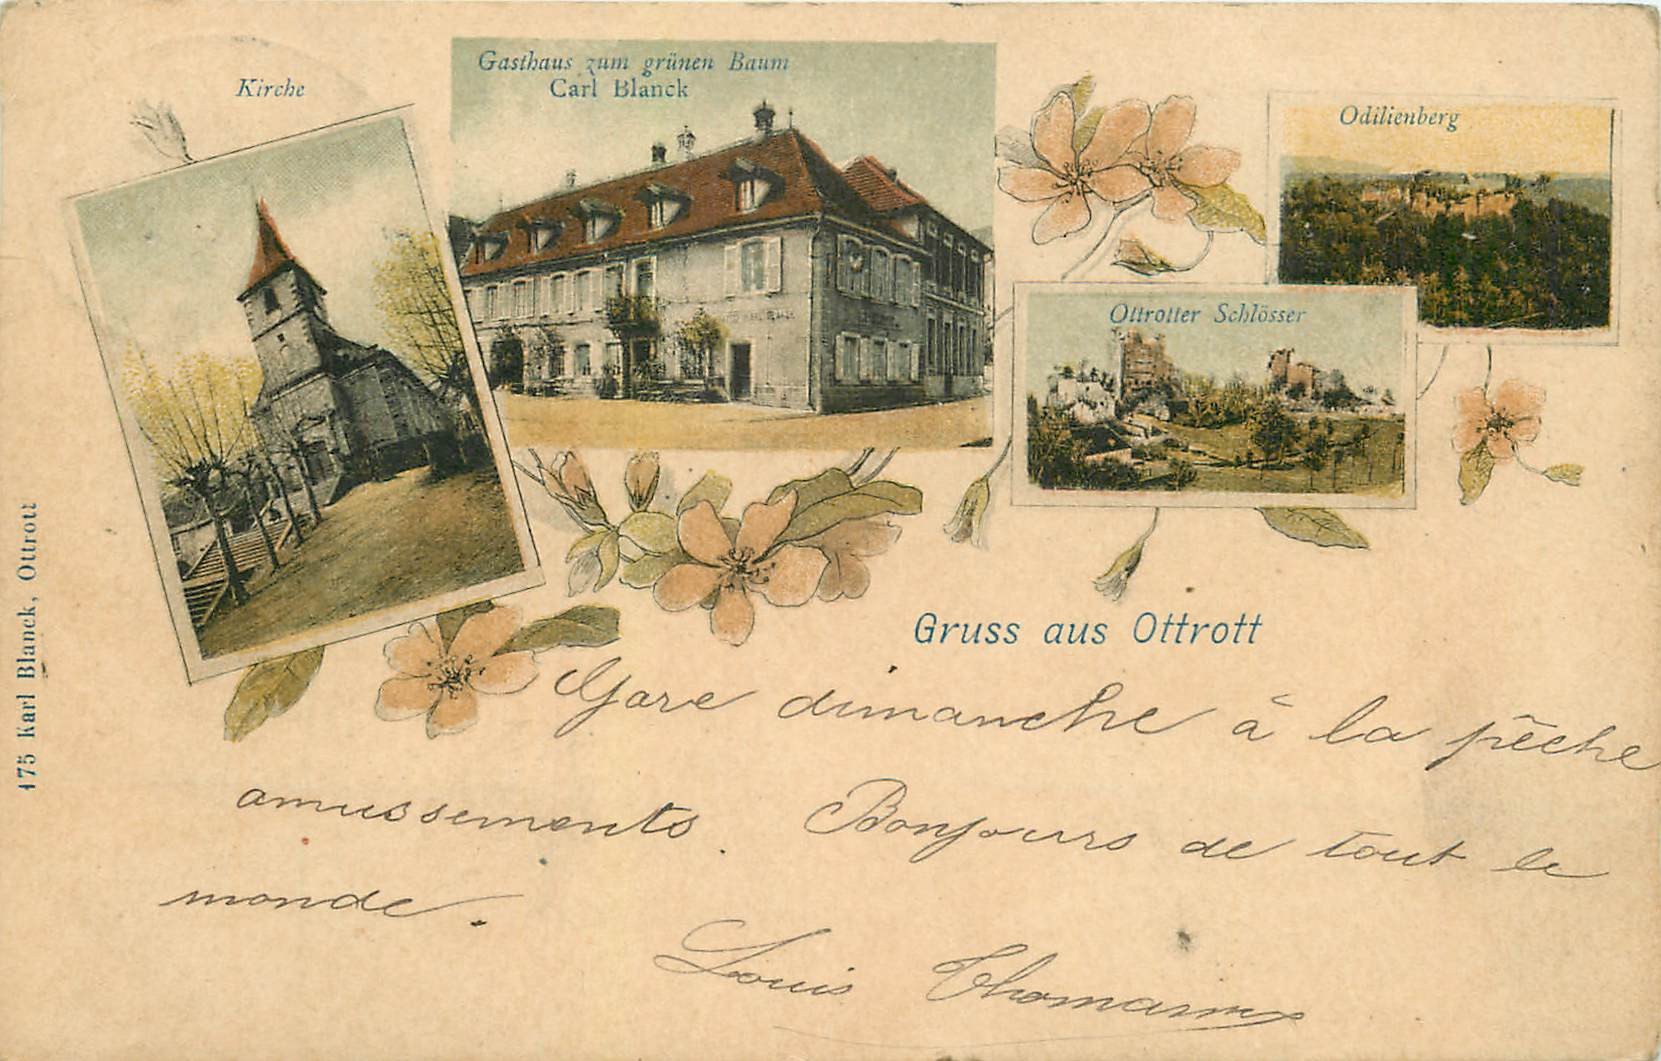 Kirche
Gasthaus zum grünen Baum
Carl Blanck
Odilienberg
Ottrotter Schlösser
Gruss aus Ottrott
175 Karl Blanck, Ottrott
Gare dimanche à la pêche
amussements. Bonjours de tout le
monde.
Louis Thomann